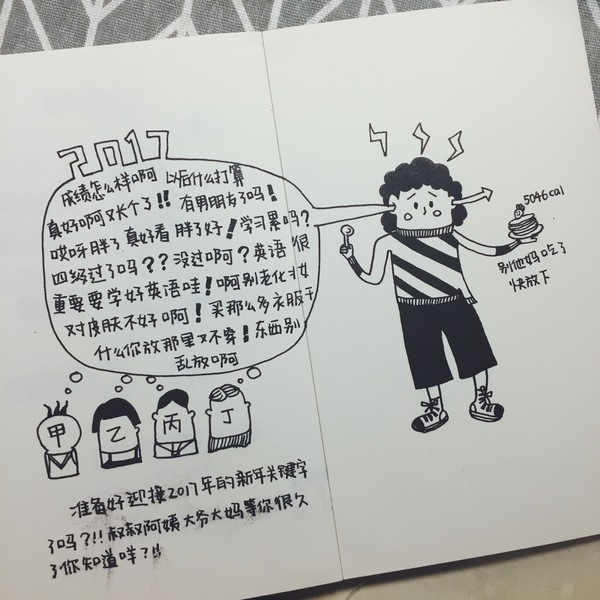 2017
成绩怎么样啊 以后什么打算
真好啊又长个了!! 有男朋友了吗!
哎呀胖了真好看 胖了好! 学习累吗?
四级过了吗?? 没过啊? 英语 很
重要要学好英语哇! 啊别老化妆
对皮肤不好啊! 买那么多衣服干
什么你放那里又不穿! 东西别
乱放啊
甲
乙
丙
丁
准备好迎接2017年的新年关键字
了吗?!! 叔叔阿姨大爷大妈等你很久
了你知道咩?!!
5046cal
别他妈吃了
快放下